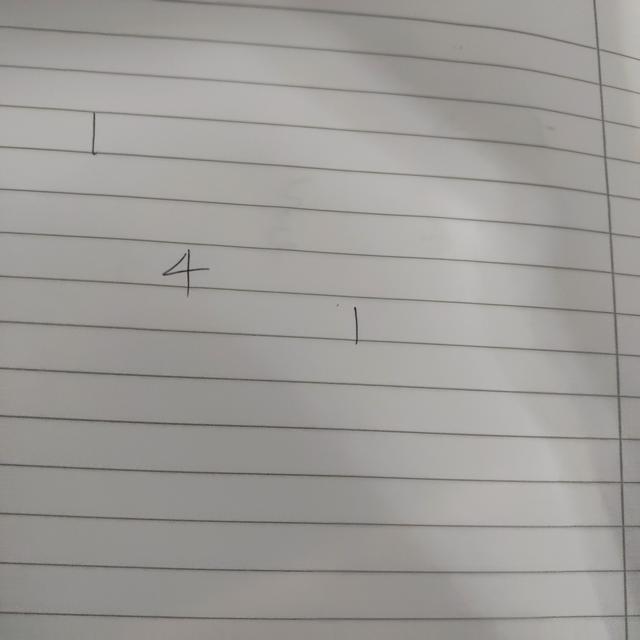 1
4
1